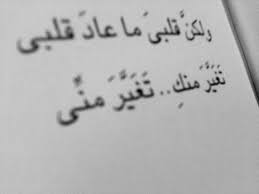 ولكنَّ قلبىَ ما عادَ قلبى
تَغيَّرَ منكِ.. تَغَيَّرَ منِّى